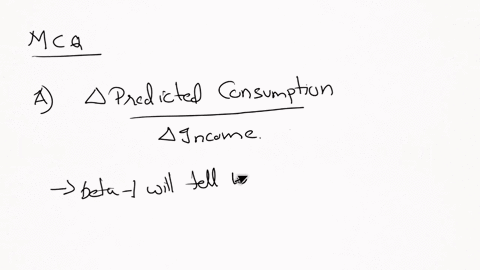 MCQ
A) Δ Predicted Consumption
Δ Income.
→ beta-1 will tell